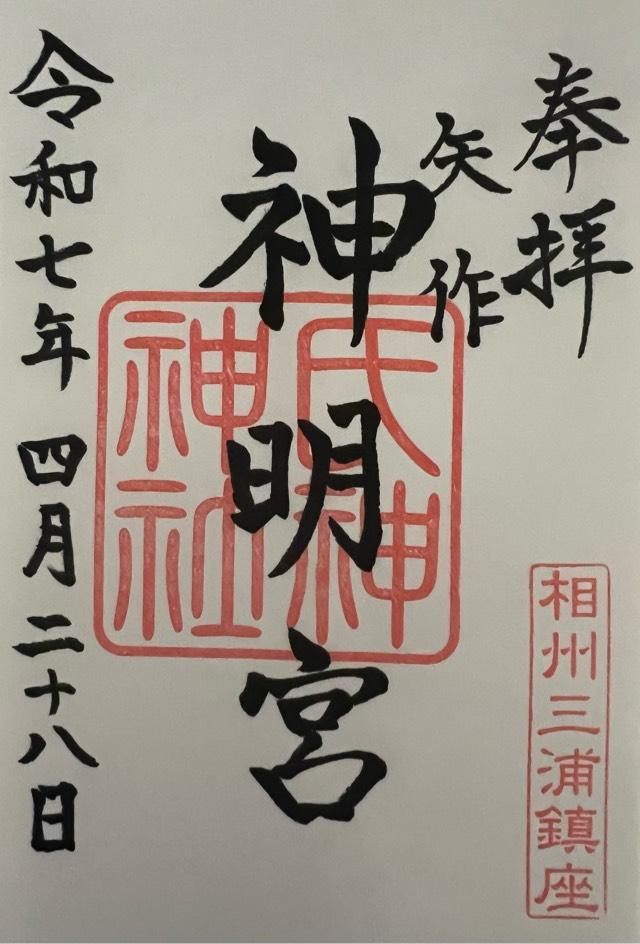 奉拝
相州三浦鎮座
矢作
神明宮
氏神
神社
令和七年四月二十八日